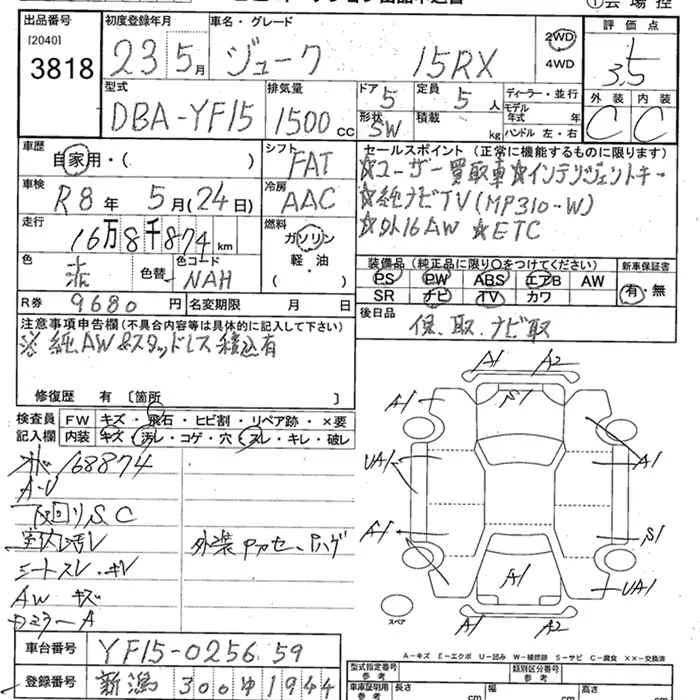 出品番号
[2040]
3818
初度登録年月
23 5月
車名・グレード
ジューク 15RX
2WD
4WD
評価点
3.5
外装 内装
C C
型式
DBA-YF15
排気量
1500 CC
ドア 5
形状 SW
定員 5 人
積載 kg
ディーラー・並行
モデル年式 年
ハンドル 左・右
車歴
自家用・( )
シフト
FAT
車検
R8年 5月(24日)
冷房
AAC
走行
16万8千874 km
燃料
ガソリン
軽・油
( )
色
色替
色コード
NAH
R券 9680 円
名変期限 月 日
セールスポイント (正常に機能するものに限ります)
☆ユーザー買取車☆インテリジェントキー
☆純ナビTV(MP310-W)
☆外16AW ☆ETC
装備品 (純正品に限り○をつけてください)
PS PW ABS エアB AW
SR ナビ TV カワ
新車保証書
有・無
後日品
保、取、ナビ取
注意事項申告欄(不具合内容等は具体的に記入して下さい)
※純AW&スタッドレス積込有
修復歴 有 [箇所 ]
検査員記入欄
FW キズ・飛石・ヒビ割・リペア跡・×要
内装 キズ・汚レ・コゲ・穴・スレ・キレ・破レ
168874
A-U
下回りSC
室内汚レ
シートスレ・キレ
AW キズ
ドミラーA
外装アカセ、ハゲ
A1 A2
A1 S1
UA1 A1
A1 S1
A1 UA1
A1 A2
スペア
A-キズ E-エクボ U-凹み W-補修跡 S-サビ C-腐食 ××-交換済
車台番号 YF15-025659
登録番号 新潟 300ゆ1944
型式指定番号 参考
類別区分番号 参考
車車証明用 参考
長さ cm 幅 cm 高さ cm